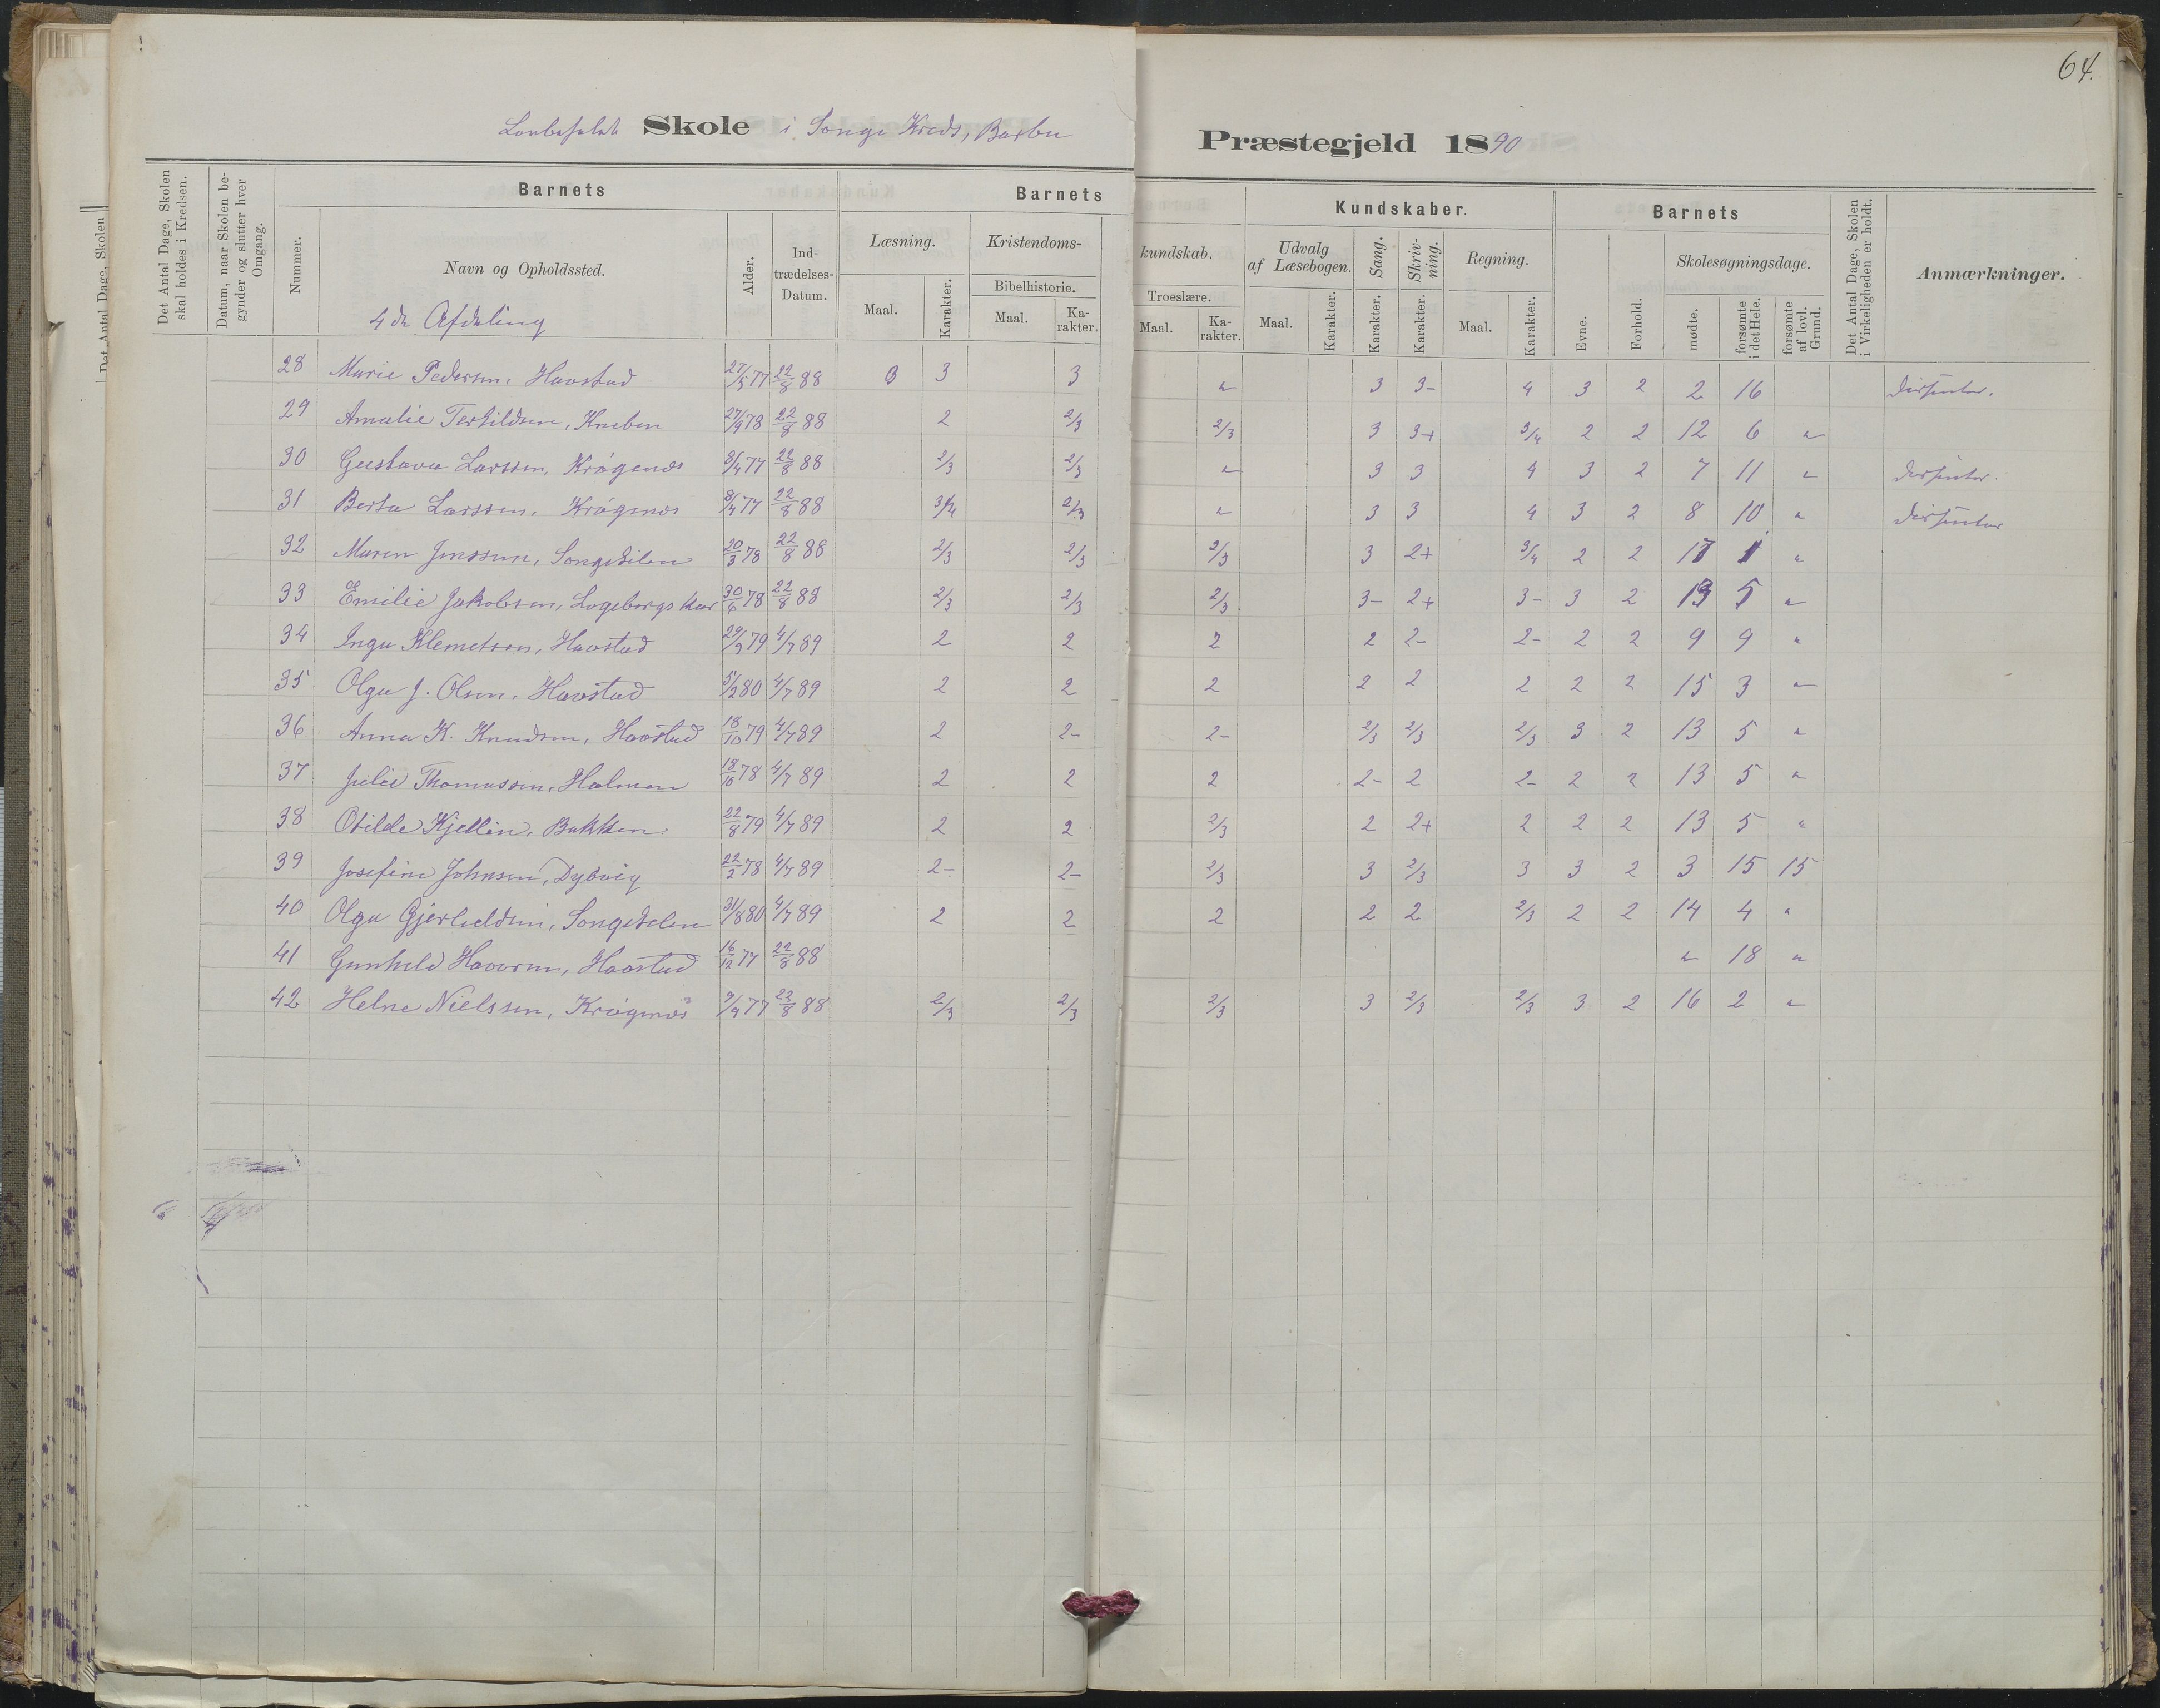 64.
Lovbefalet Skole i Songe Kreds, Barbu Præstegjeld 1890
Det Antal Dage, Skolen skal holdes i Kredsen.
Datum, naar Skolen begynder og slutter hver Omgang.
Barnets
Nummer.
Navn og Opholdssted.
Alder.
Indtrædelses-Datum.
Barnets Kundskaber.
Læsning. Maal. Karakter.
Kristendoms-kundskab.
Bibelhistorie. Maal. Karakter.
Troeslære. Maal. Karakter.
Udvalg af Læsebogen. Maal. Karakter.
Sang. Karakter.
Skrivning. Karakter.
Regning. Maal. Karakter.
Barnets
Evne. Forhold.
Skolesøgningsdage.
mødte. forsømte i det Hele. forsømte af lovl. Grund.
Det Antal Dage, Skolen i Virkeligheden er holdt.
Anmærkninger.
4de Afdeling
28 Marie Pedersen, Havstad 27/5 77 22/8 88 3 3 " 3 3- 4 3 2 2 16 dissenter.
29 Amalie Terkildsen, Kneben 27/9 78 22/8 88 2 2/3 2/3 3 3+ 3/4 2 2 12 6 "
30 Gustava Larssen, Krøgenæs 8/4 77 22/8 88 2/3 2/3 " 3 3 4 3 2 7 11 " dissenter.
31 Berta Larssen, Krøgenæs 8/4 77 22/8 88 3/4 2/3 " 3 3 4 3 2 8 10 " dissenter
32 Maren Jenssen, Songedalen 20/3 78 22/8 88 2/3 2/3 2/3 3 2+ 3/4 2 2 17 1 "
33 Emilie Jakobsen, Logebergskar 30/6 78 22/8 88 2/3 2/3 2/3 3- 2+ 3- 3 2 13 5 "
34 Inga Klemetsen, Havstad 29/9 79 4/7 89 2 2 2 2 2- 2- 2 2 9 9 "
35 Olga J. Olsen, Havstad 5/2 80 4/7 89 2 2 2 2 2 2 2 2 15 3 "
36 Anna K. Knudsen, Havstad 18/10 79 4/7 89 2 2- 2- 2/3 2/3 2/3 3 2 13 5 "
37 Julie Thomassen, Holmen 18/10 78 4/7 89 2 2 2 2- 2 2- 2 2 13 5 "
38 Otilde Kjellin, Bakken 22/8 79 4/7 89 2 2 2/3 2 2+ 2 2 2 13 5 "
39 Josefine Johnsen, Dybvig 22/2 78 4/7 89 2- 2- 2/3 3 2/3 3 3 2 3 15 15
40 Olga Gjeruldsen, Songedalen 31/8 80 4/7 89 2 2 2 2 2 2/3 2 2 14 4 "
41 Gunhild Haversen, Havstad 16/12 77 22/8 88 " 18 "
42 Helne Nielssen, Krøgenæs 9/9 77 22/8 88 2/3 2/3 2/3 3 2/3 2/3 3 2 16 2 "